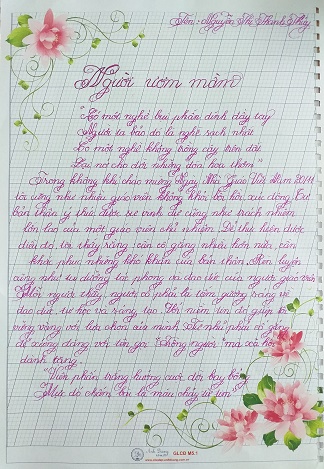 Tên: Nguyễn Thị Thanh Thúy
Người ươm mầm
"Có một nghề bụi phấn dính đầy tay
Người ta bảo đó là nghề sạch nhất
Có một nghề không trồng cây trên đất
Lại nở cho đời những đóa hoa thơm"
Trong không khí chào mừng Ngày Nhà Giáo Việt Nam 20/11
tôi cũng như nhiều giáo viên không khỏi bồi hồi, xúc động.
bản thân ý thức được sự vinh dự cũng như trách nhiệm
lớn lao của một giáo viên chủ nhiệm. Để thực hiện được
điều đó, tôi thấy rằng cần cố gắng nhiều hơn nữa,
khắc phục những khó khăn của bản thân. Rèn luyện
cũng như tu dưỡng tác phong và đạo đức của người giáo viên
Mỗi người thầy, người cô phải là tấm gương sáng về
đạo đức, tự học và sáng tạo. niềm tin đó giúp tôi
vững vàng với lựa chọn của mình. cố gắng
để xứng đáng với tên gọi mà xã hội
dành tặng.
"Viên phấn trắng hướng cuộc đời bay bổng
Mực đỏ chấm bài là máu chảy từ tim"
GLCD M5.1